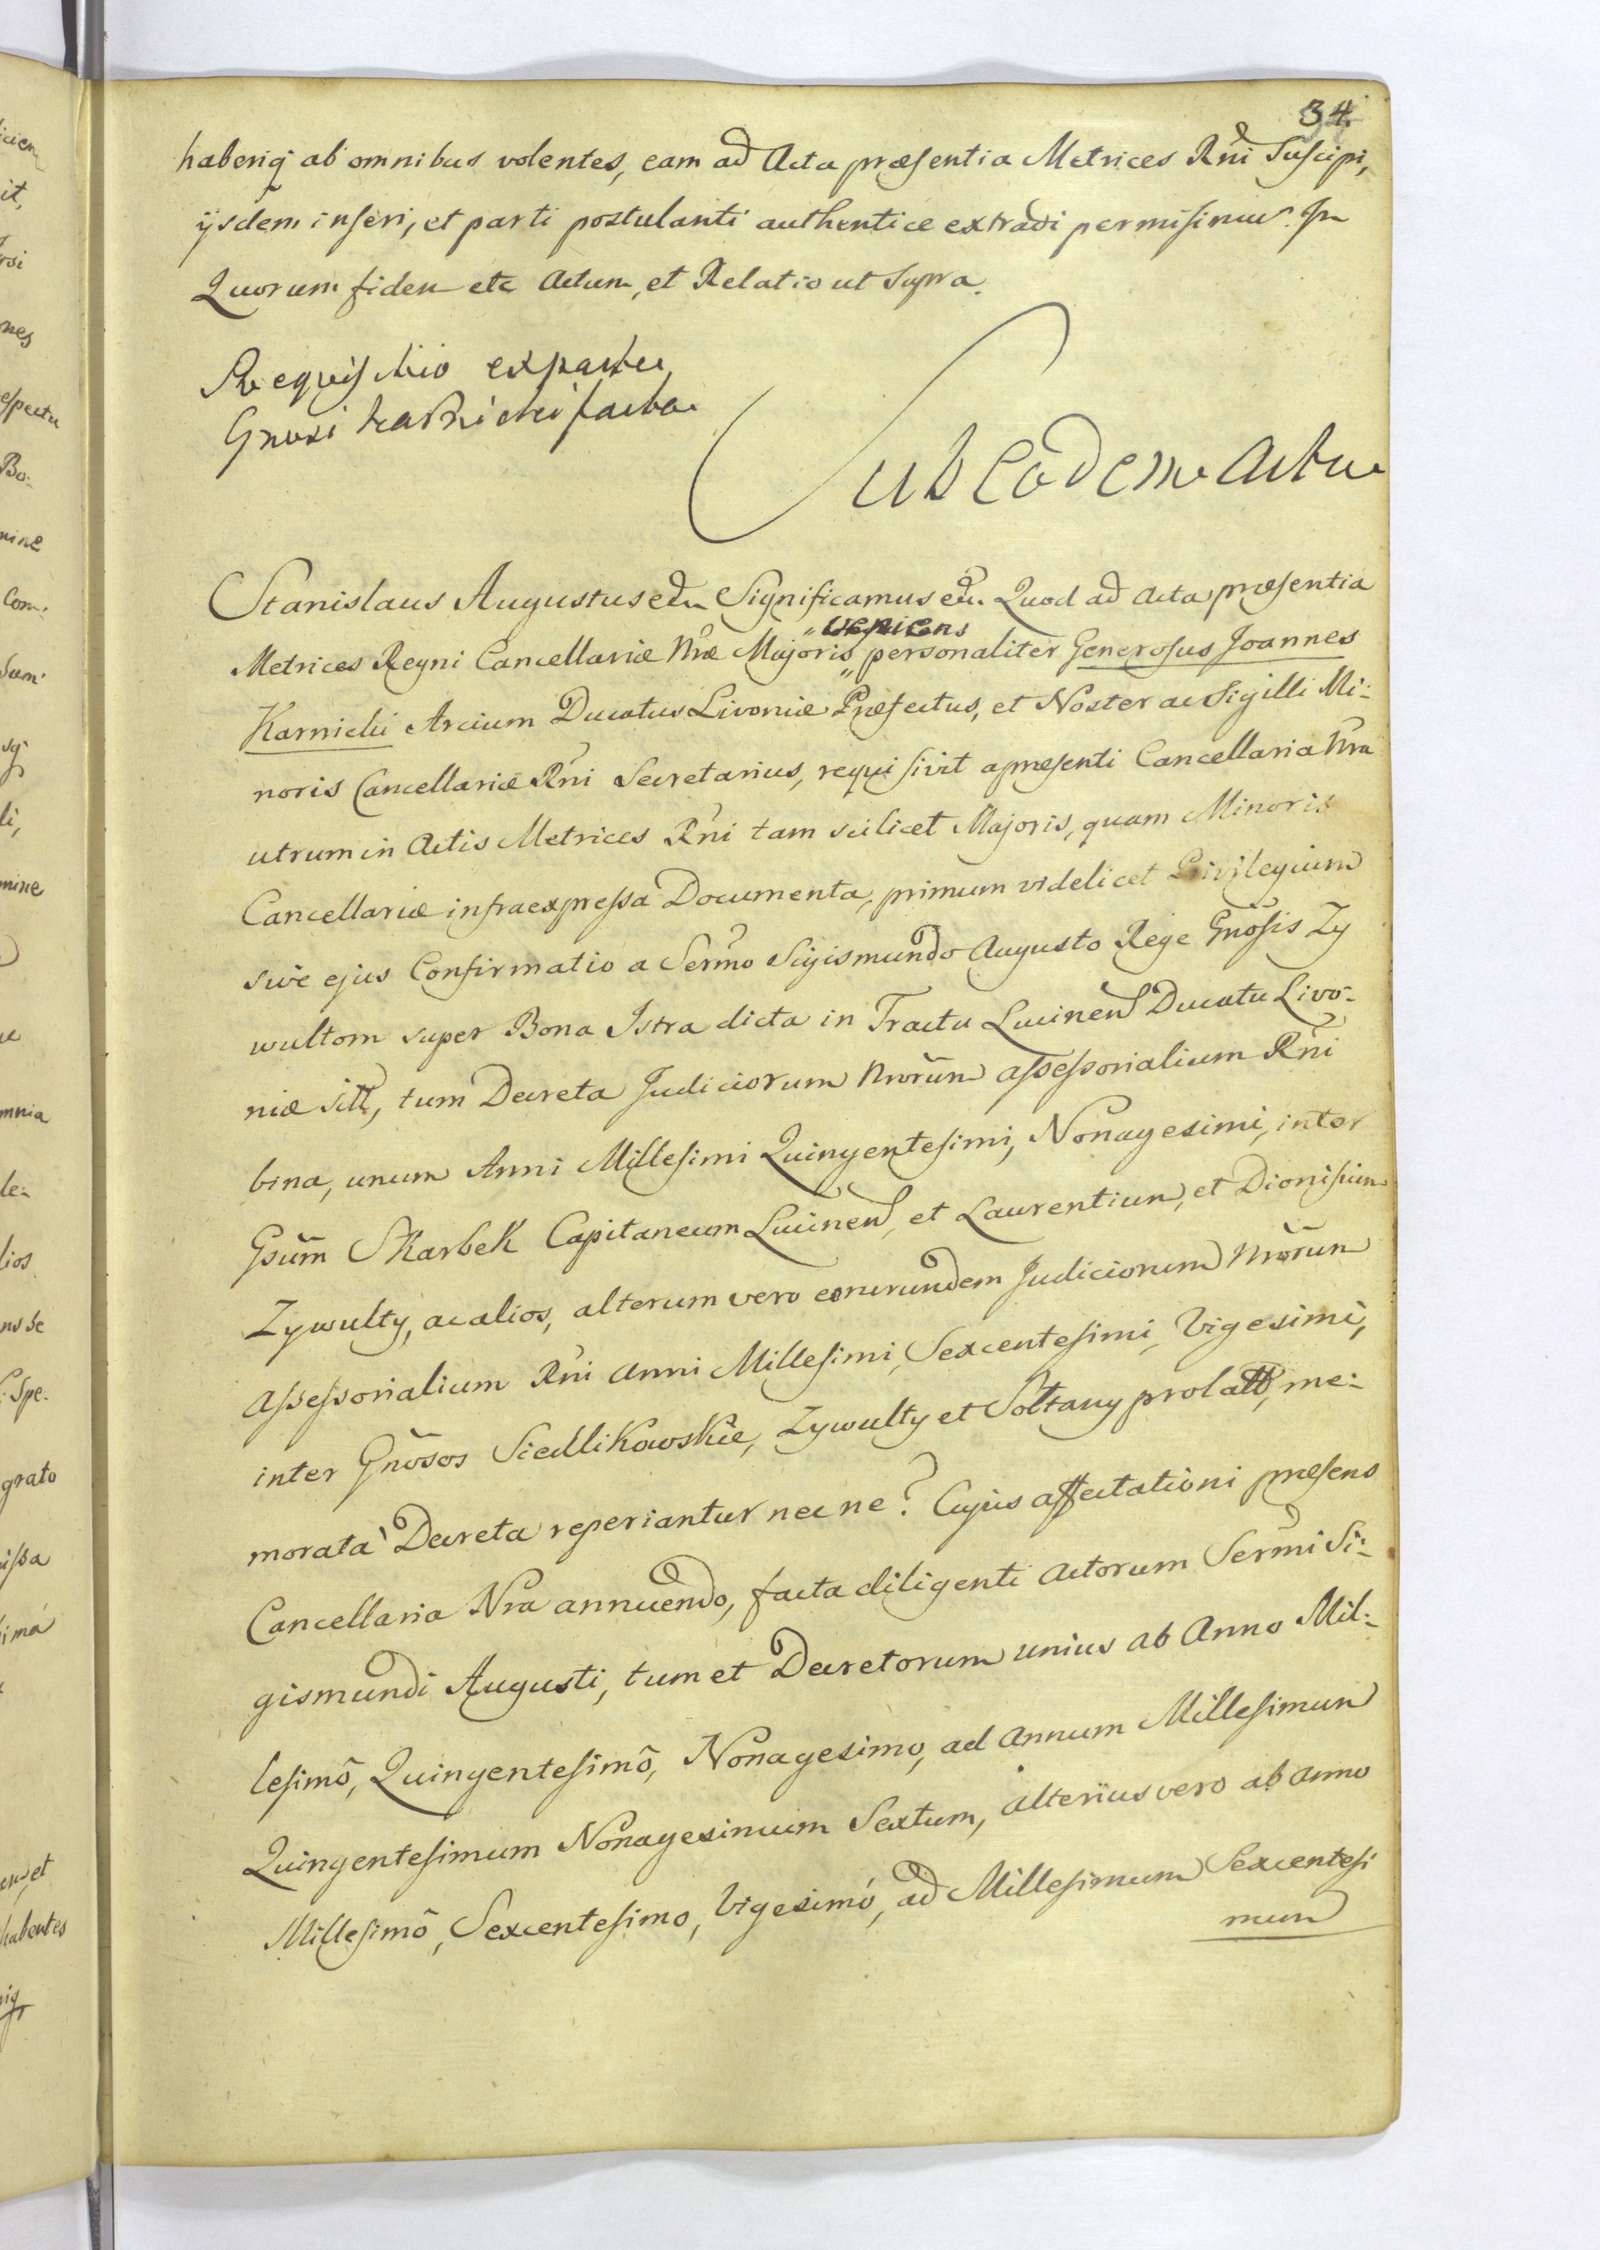 34.
haberiq ab omnibus volentes, eam ad Acta præsentia Metrices Rni Suscipi,
ijsdem inseri, et parti postulanti authentice extradi permisimus. In
Quorum fidem etc Actum, et Relatio ut Supra.
Requisitio ex parte
Gnosi Karnicki facta
Sub eodem Actu
Stanislaus Augustus etc. Significamus etc. Quod ad Acta præsentia
veniens
Metrices Regni Cancellariæ Nræ Majoris personaliter Generosus Joannes
Karnicki Arcium Ducatus Livoniæ Præfectus, et Noster ac Sigilli Mi-
noris Cancellariæ Rni Secretarius, requisivit a præsenti Cancellaria Nra
utrum in Actis Metrices Rni tam scilicet Majoris, quam Minoris
Cancellariæ infraexpressa Documenta, primum videlicet Privilegium
sive ejus Confirmatio a Sermo Sigismundo Augusto Rege Gnosis Zy
wultom super Bona Istra dicta in Tractu Lucinen Ducatu Livo-
niæ sitt, tum Decreta Judiciorum Nrorum assessorialium Rni
bina, unum Anni Millesimi Quingentesimi, Nonagesimi, inter
Gsum Skarbek Capitaneum Lucinen, et Laurentium, et Dionisium
Zywulty, ac alios, alterum vero eorumdem Judiciorum Nrorum
Assessorialium Rni Anni Millesimi, Sexcentesimi, Vigesimi,
inter Gnosos Siedlikowskie, Zywulty et Sołtany prolatt, me-
morata Decreta reperiantur nec ne? Cujus affectationi præsens
Cancellaria Nra annuendo, facta diligenti Actorum Sermi Si-
gismundi Augusti, tum et Decretorum unius ab Anno Mil-
lesimo, Quingentesimo, Nonagesimo, ad Annum Millesimum
Quingentesimum Nonagesimum Sextum, alterius vero ab Anno
Millesimo, Sexcentesimo, Vigesimo, ad Millesimum Sexcentesi
mum